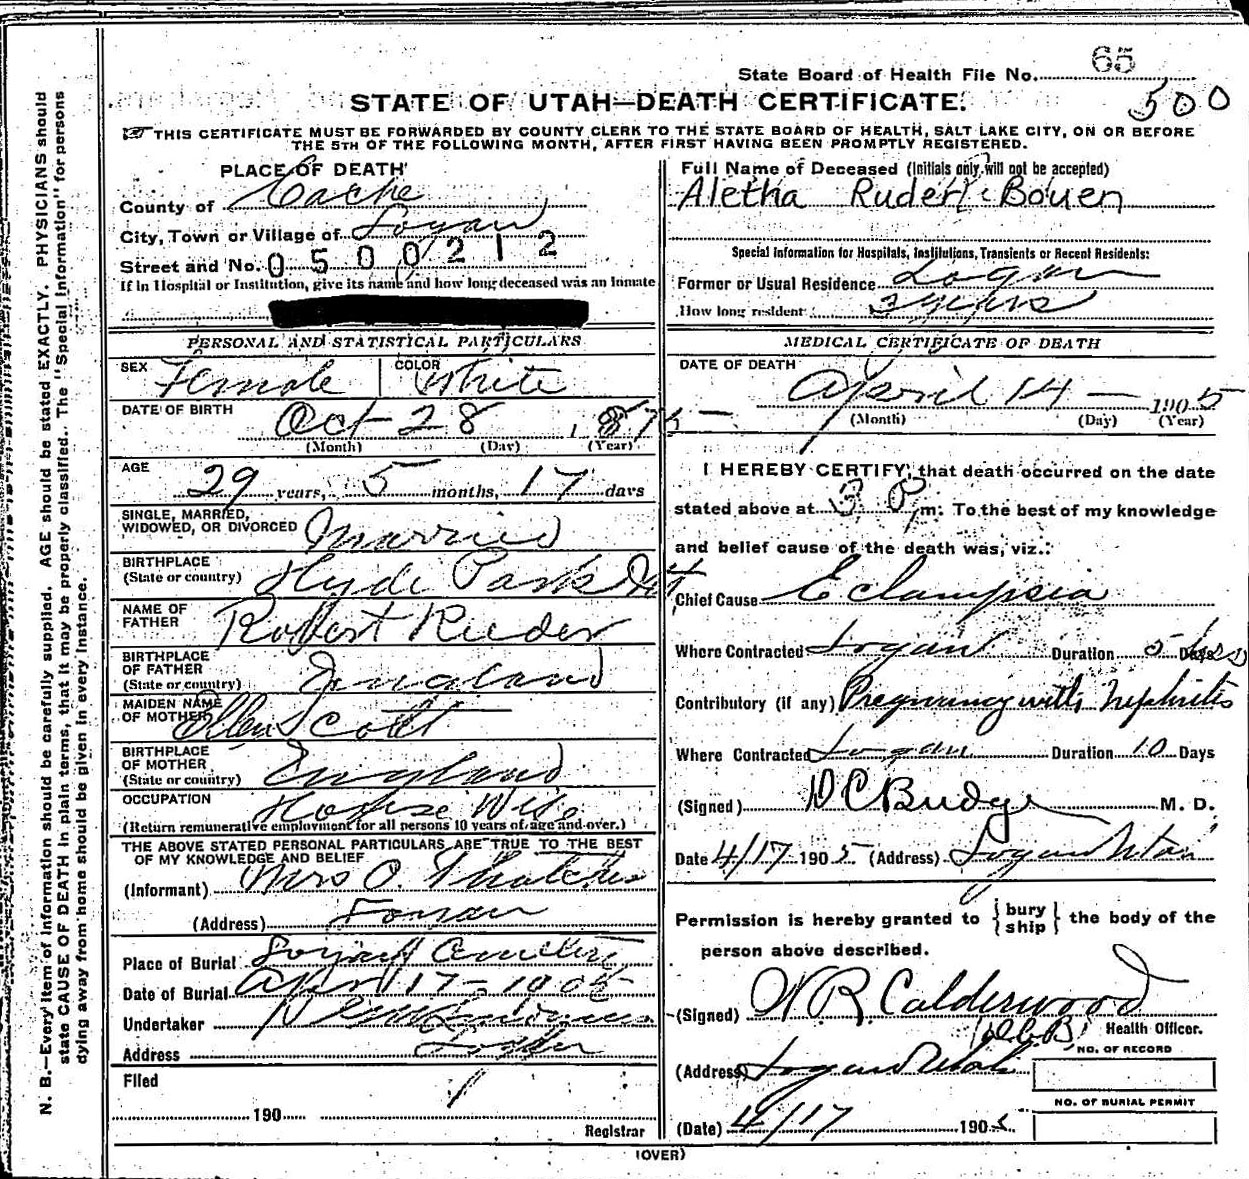 State Board of Health File No. 65
STATE OF UTAH—DEATH CERTIFICATE.
500
THIS CERTIFICATE MUST BE FORWARDED BY COUNTY CLERK TO THE STATE BOARD OF HEALTH, SALT LAKE CITY, ON OR BEFORE
THE 5TH OF THE FOLLOWING MONTH, AFTER FIRST HAVING BEEN PROMPTLY REGISTERED.
N. B.—Every item of information should be carefully supplied. AGE should be stated EXACTLY. PHYSICIANS should
state CAUSE OF DEATH in plain terms, that it may be properly classified. The "Special Information" for persons
dying away from home should be given in every instance.
PLACE OF DEATH
County of Cache
City, Town or Village of Logan
Street and No. 0500212
If in Hospital or Institution, give its name and how long deceased was an Inmate
PERSONAL AND STATISTICAL PARTICULARS
SEX Female COLOR White
DATE OF BIRTH Oct 28, 1875
(Month) (Day) (Year)
AGE
29 years, 5 months, 17 days
SINGLE, MARRIED,
WIDOWED, OR DIVORCED Married
BIRTHPLACE
(State or country) Hyde Park Ut
NAME OF
FATHER Robert Reeder
BIRTHPLACE
OF FATHER
(State or country) England
MAIDEN NAME
OF MOTHER Ellen Scott
BIRTHPLACE
OF MOTHER
(State or country) England
OCCUPATION House Wife
(Return remunerative employment for all persons 10 years of age and over.)
THE ABOVE STATED PERSONAL PARTICULARS ARE TRUE TO THE BEST
OF MY KNOWLEDGE AND BELIEF
(Informant) Mrs O. Thatcher
(Address) Logan
Place of Burial Logan Cemetery
Date of Burial April 17-1905
Undertaker
Address Logan
Filed
190
Registrar
Full Name of Deceased (Initials only will not be accepted)
Aletha Bowen
Special Information for Hospitals, Institutions, Transients or Recent Residents:
Former or Usual Residence Logan
How long resident 3 years
MEDICAL CERTIFICATE OF DEATH
DATE OF DEATH
April 14 - 1905
(Month) (Day) (Year)
I HEREBY CERTIFY, that death occurred on the date
stated above at 3 P m. To the best of my knowledge
and belief cause of the death was, viz.:
Chief Cause Eclampsia
Where Contracted Logan Duration 5 Days
Contributory (if any) Pregnancy with Nephritis
Where Contracted Logan Duration 10 Days
(Signed) D C Budge M. D.
Date 4/17 1905 (Address) Logan Utah
Permission is hereby granted to { bury ship } the body of the
person above described.
(Signed) W R Calderwood
Health Officer.
(Address) Logan Utah
NO. OF RECORD
NO. OF BURIAL PERMIT
(Date) 4/17 1905
(OVER)